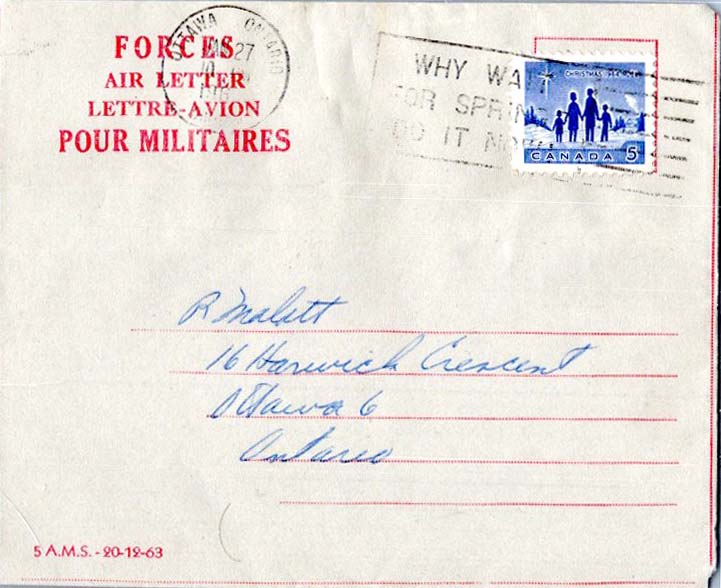 FORCES
AIR LETTER
LETTRE-AVION
POUR MILITAIRES
OTTAWA ONTARIO
27
WHY WAIT
FOR SPRING
DO IT NOW
CHRISTMAS 1964 NOËL
CANADA 5
R Malett
16 Harwich Crescent
Ottawa 6
Ontario
5 A.M.S. - 20-12-63